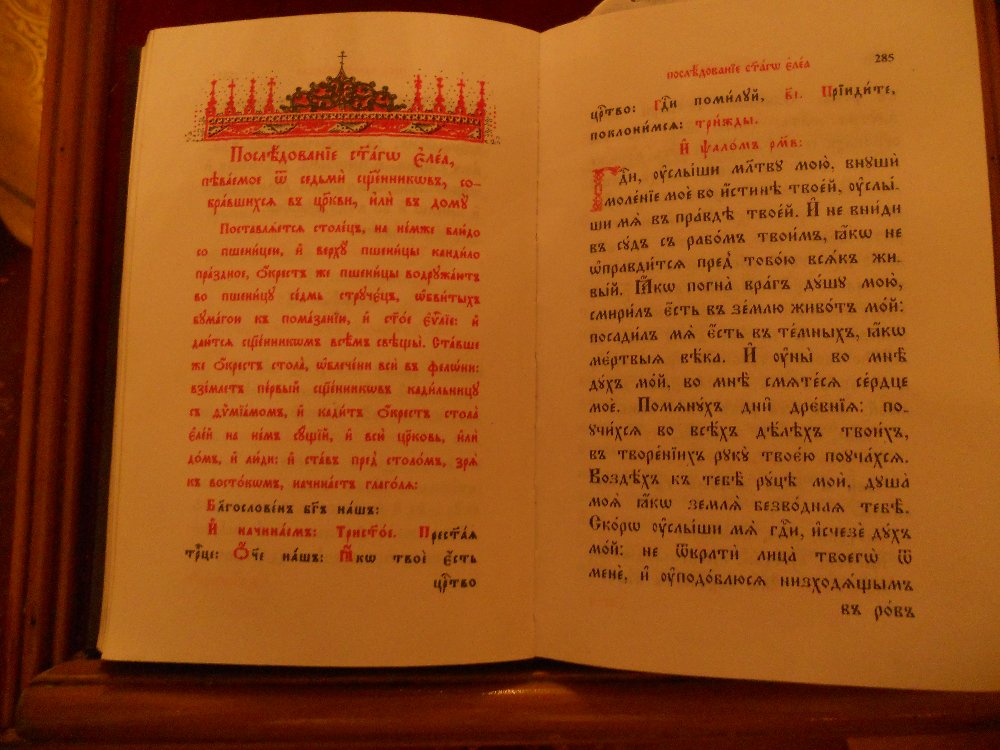 Послѣ́дованїе ст҃а́гѡ є҆ле́а,
пѣва́емое ѿ седмѝ сщ҃е́нникѡвъ, со-
бра́вшихсѧ въ цр҃кви, и҆лѝ въ домꙋ̀
Поставлѧ́етсѧ столе́цъ, на не́мже блю́до
со пшени́цею, и҆ верхꙋ̀ пшени́цы канди́ло
пра́здное, ѻ҆́крестъ же пшени́цы водрꙋжа́ютъ
во пшени́цꙋ се́дмь стрꙋ́чєцъ, ѡ҆бви́тыхъ
бꙋма́гою къ пома́занїю, и҆ ст҃о́е є҆ѵⷢ҇лїе: и҆
даю́тсѧ сщ҃е́нникѡмъ всѣ̑мъ свѣщы̀. Ста́вше
же ѻ҆́крестъ стола̀, ѡ҆блече́ни всѝ въ фелѡ́ни:
взе́млетъ пе́рвый сщ҃е́нникѡвъ кади́льницꙋ
съ ѳ҆ѷмїа́момъ, и҆ кади́тъ ѻ҆́крестъ стола̀
є҆ле́й на не́мъ сꙋ́щїй, и҆ всю̀ цр҃ковь, и҆лѝ
до́мъ, и҆ лю́ди: и҆ ста́въ пред̾ столо́мъ, зрѧ̀
къ восто́кѡмъ, начина́етъ глаго́лѧ:
Бл҃гослове́нъ бг҃ъ на́шъ:
И҆ начина́емъ: Трист҃о́е. Прест҃а́ѧ
трⷪ҇це: Ѻ҆́ч҃е на́шъ: Ꙗ҆́кѡ твоѐ є҆́сть
црⷭ҇тво
послѣ́дованїе ст҃а́гѡ є҆ле́а 285
црⷭ҇тво: Гдⷭ҇и поми́лꙋй, в҃і. Прїиди́те,
поклони́мсѧ: три́жды.
И҆ ѱало́мъ рм҃в:
Гдⷭ҇и, ᲂу҆слы́ши мл҃твꙋ мою̀, внꙋшѝ
моле́нїе моѐ во и҆́стинѣ твое́й, ᲂу҆слы́-
ши мѧ̀ въ пра́вдѣ твое́й. И҆ не вни́ди
въ сꙋ́дъ съ рабо́мъ твои́мъ, ꙗ҆́кѡ не
ѡ҆правди́тсѧ пред̾ тобо́ю всѧ́къ жи-
вы́й. Ꙗ҆́кѡ погна̀ вра́гъ дꙋ́шꙋ мою̀,
смири́лъ є҆́сть въ зе́млю живо́тъ мо́й:
посади́лъ мѧ̀ є҆́сть въ те́мныхъ, ꙗ҆́кѡ
мє́ртвыѧ вѣ́ка. И҆ ᲂу҆ны̀ во мнѣ̀
дꙋ́хъ мо́й, во мнѣ̀ смѧте́сѧ се́рдце
моѐ. Помѧнꙋ́хъ дни̑ дрє́внїѧ: по-
ꙋчи́хсѧ во всѣ́хъ дѣ́лѣхъ твои́хъ,
въ творе́нїихъ рꙋкꙋ̀ твоє́ю поꙋча́хсѧ.
Воздѣ́хъ къ тебѣ̀ рꙋ́цѣ моѝ, дꙋша̀
моѧ̀ ꙗ҆́кѡ землѧ̀ безво́днаѧ тебѣ̀.
Ско́рѡ ᲂу҆слы́ши мѧ̀ гдⷭ҇и, и҆счезѐ дꙋ́хъ
мо́й: не ѿвратѝ лица̀ твоегѡ̀ ѿ
менє̀, и҆ ᲂу҆подо́блюсѧ низходѧ́щымъ
въ ро́въ